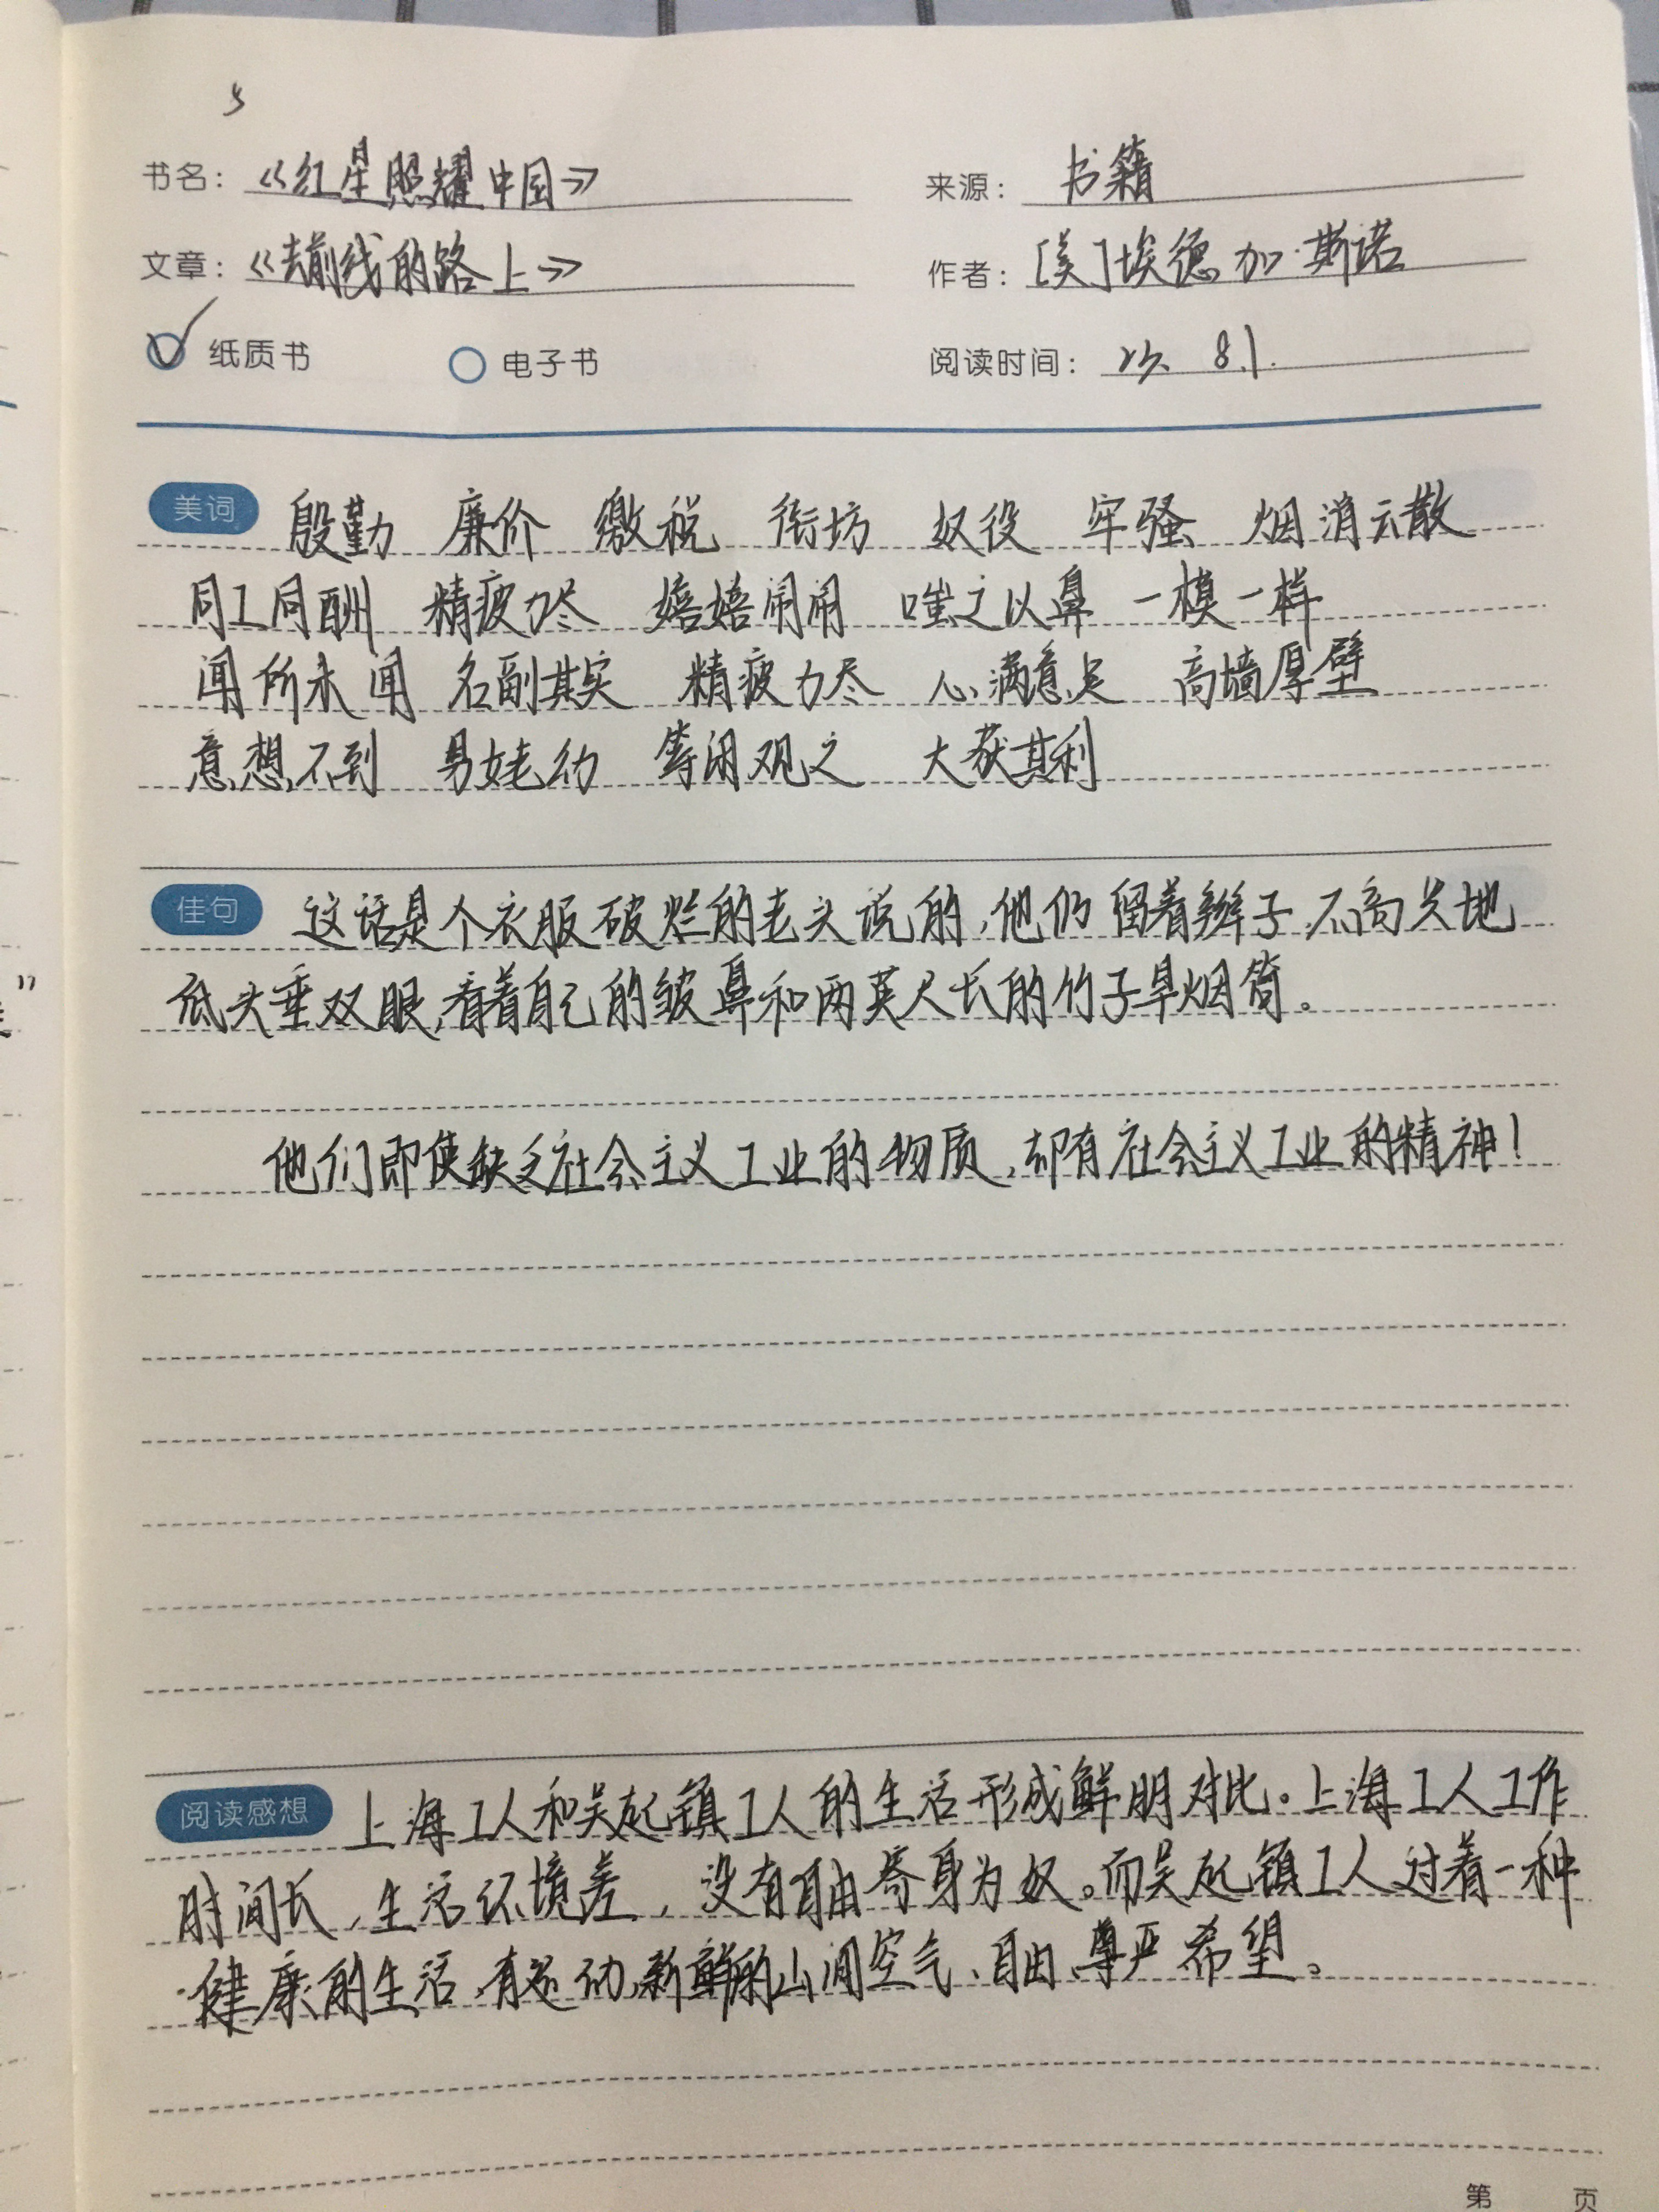 书名：《红星照耀中国》 来源：书籍
文章：《去前线的路上》 作者：[美]埃德加·斯诺
纸质书 电子书 阅读时间： 8.1.
美词 殷勤 廉价 缴税 街坊 奴役 牢骚 烟消云散
同工同酬 精疲力尽 嬉嬉闹闹 嗤之以鼻 一模一样
闻所未闻 名副其实 精疲力尽 心满意足 高墙厚壁
意想不到 男女老幼 等闲观之 大获其利
佳句 这话是个衣服破烂的老头说的,他仍留着辫子,不高兴地
低头垂双眼,看着自己的皱鼻和两英尺长的竹子旱烟筒。
他们即使缺乏社会主义工业的物质,却有社会主义工业的精神!
阅读感想 上海工人和吴起镇工人的生活形成鲜明对比。上海工人工作
时间长,生活环境差,没有自由,卷身为奴。而吴起镇工人过着一种
健康的生活,有运动,新鲜的山间空气、自由、尊严、希望。
第 页